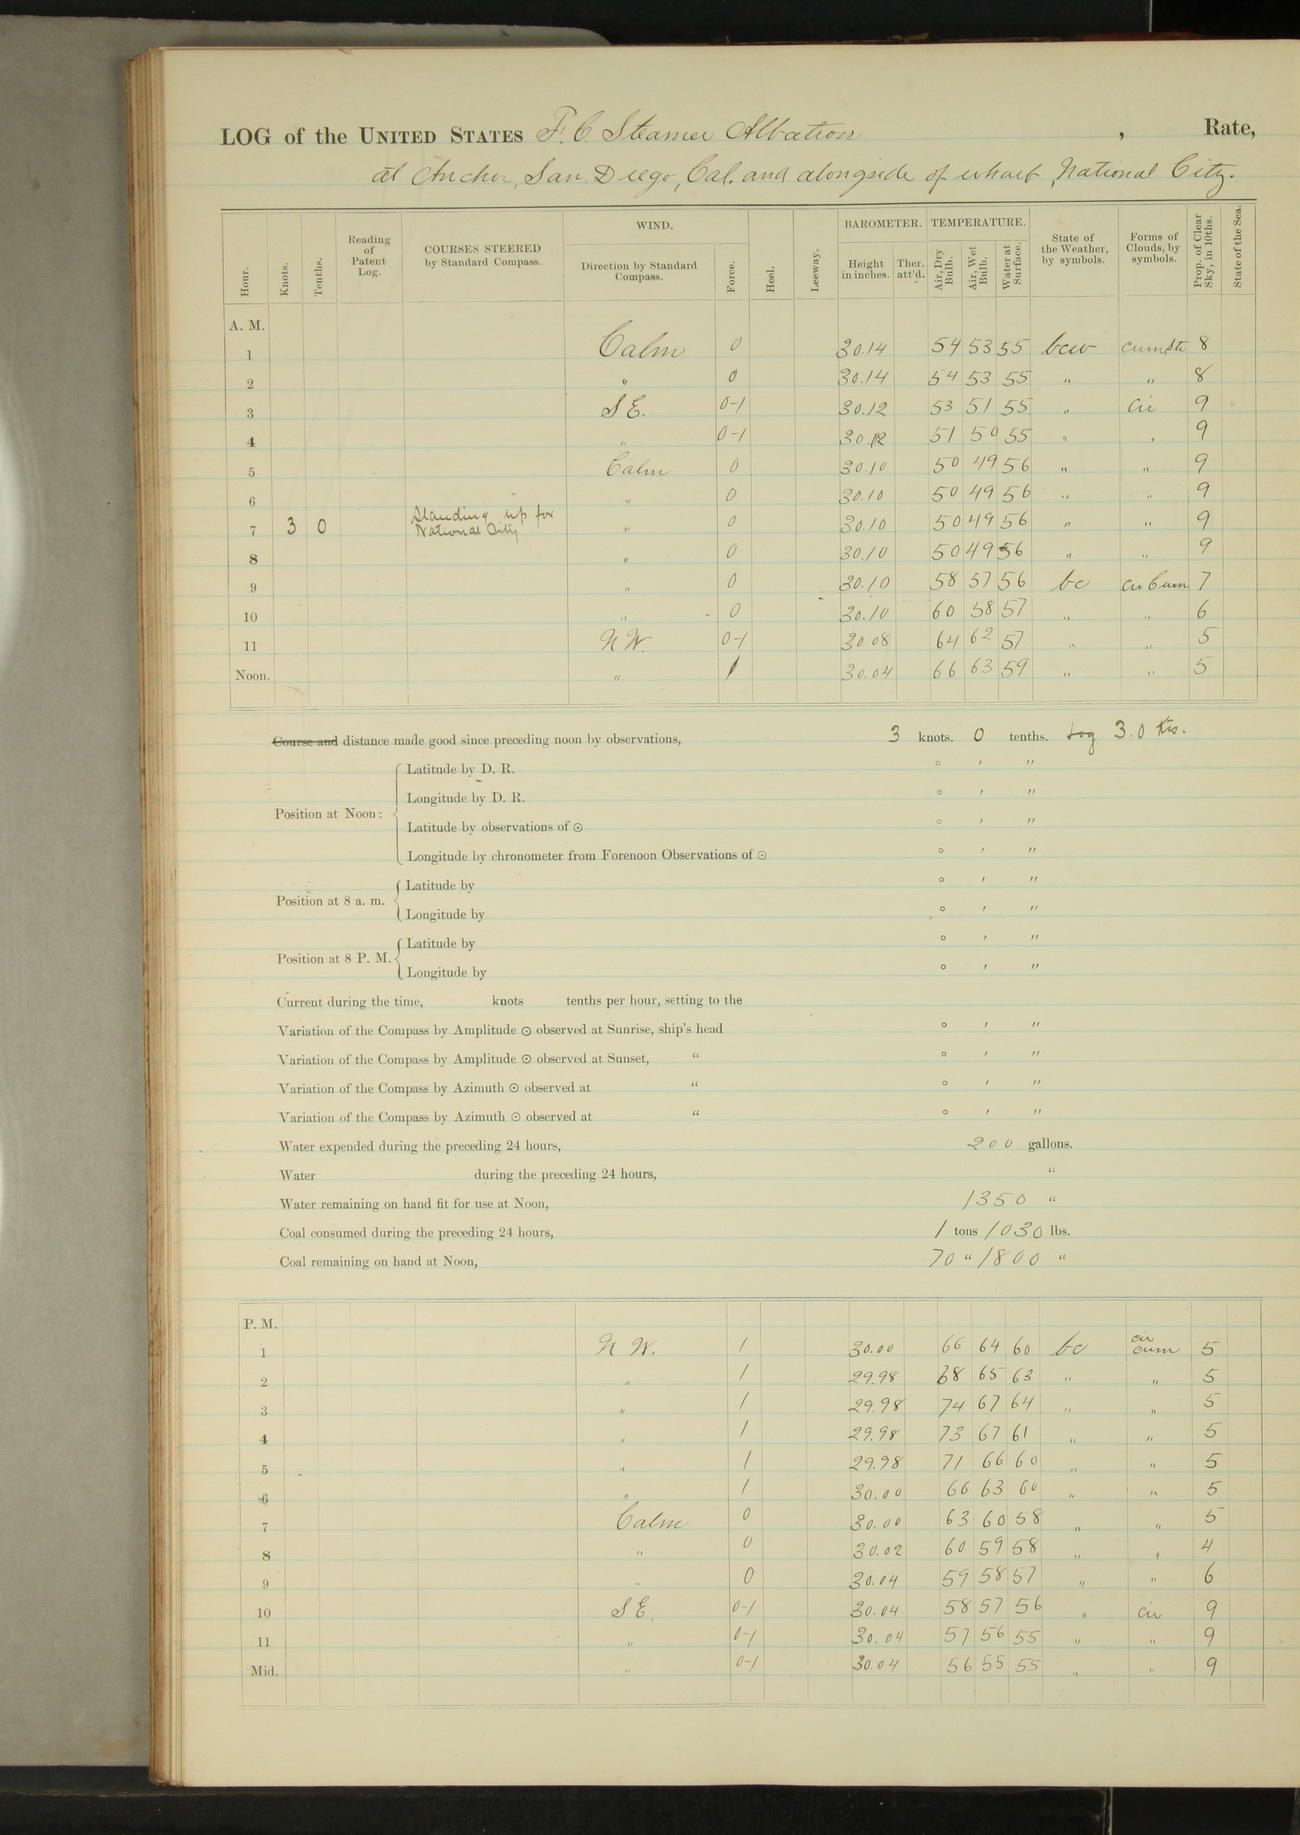 LOG of the UNITED STATES F. C. Steamer Albatross , Rate,
at Anchor, San Diego, Cal. and alongside of wharf, National City.
WIND. BAROMETER. TEMPERATURE.
Hour. Knots. Tenths. Reading of Patent Log. COURSES STEERED by Standard Compass. Direction by Standard Compass. Force. Heel. Leeway. Height in inches. Ther. att'd. Air, Dry Bulb. Air, Wet Bulb. Water at Surface. State of the Weather, by symbols. Forms of Clouds, by symbols. Prop. of Clear Sky, in 10ths. State of the Sea.
A. M.
1 Calm 0 30.14 54 53 55 bcw cum str 8
2 " 0 30.14 54 53 55 " " 8
3 S E. 0-1 30.12 53 51 55 " Cir 9
4 " 0-1 30.12 51 50 55 " " 9
5 Calm 0 30.10 50 49 56 " " 9
6 " 0 30.10 50 49 56 " " 9
7 3 0 Standing up for National City " 0 30.10 50 49 56 " " 9
8 " 0 30.10 50 49 56 " " 9
9 " 0 30.10 58 57 56 bc cir Cum 7
10 " 0 30.10 60 58 57 " " 6
11 N W. 0-1 30.08 64 62 57 " " 5
Noon. " 1 30.04 66 63 59 " " 5
Course and distance made good since preceding noon by observations, 3 knots. 0 tenths. Log 3.0 Kts.
Position at Noon: Latitude by D. R. ° ′ ″
Longitude by D. R. ° ′ ″
Latitude by observations of ☉ ° ′ ″
Longitude by chronometer from Forenoon Observations of ☉ ° ′ ″
Position at 8 a. m. Latitude by ° ′ ″
Longitude by ° ′ ″
Position at 8 P. M. Latitude by ° ′ ″
Longitude by ° ′ ″
Current during the time, knots tenths per hour, setting to the
Variation of the Compass by Amplitude ☉ observed at Sunrise, ship's head ° ′ ″
Variation of the Compass by Amplitude ☉ observed at Sunset, “ ° ′ ″
Variation of the Compass by Azimuth ☉ observed at “ ° ′ ″
Variation of the Compass by Azimuth ☉ observed at “ ° ′ ″
Water expended during the preceding 24 hours, 200 gallons.
Water during the preceding 24 hours, “
Water remaining on hand fit for use at Noon, 1350 “
Coal consumed during the preceding 24 hours, 1 tons 1030 lbs.
Coal remaining on hand at Noon, 70 “ 1800 “
P. M.
1 N W. 1 30.00 66 64 60 bc cir cum 5
2 " 1 29.98 68 65 63 " " 5
3 " 1 29.98 74 67 64 " " 5
4 " 1 29.98 73 67 61 " " 5
5 " 1 29.98 71 66 60 " " 5
6 " 1 30.00 66 63 60 " " 5
7 Calm 0 30.00 63 60 58 " " 5
8 " 0 30.02 60 59 58 " " 4
9 " 0 30.04 59 58 57 " " 6
10 S E. 0-1 30.04 58 57 56 " cir 9
11 " 0-1 30.04 57 56 55 " " 9
Mid. " 0-1 30.04 56 55 55 " " 9